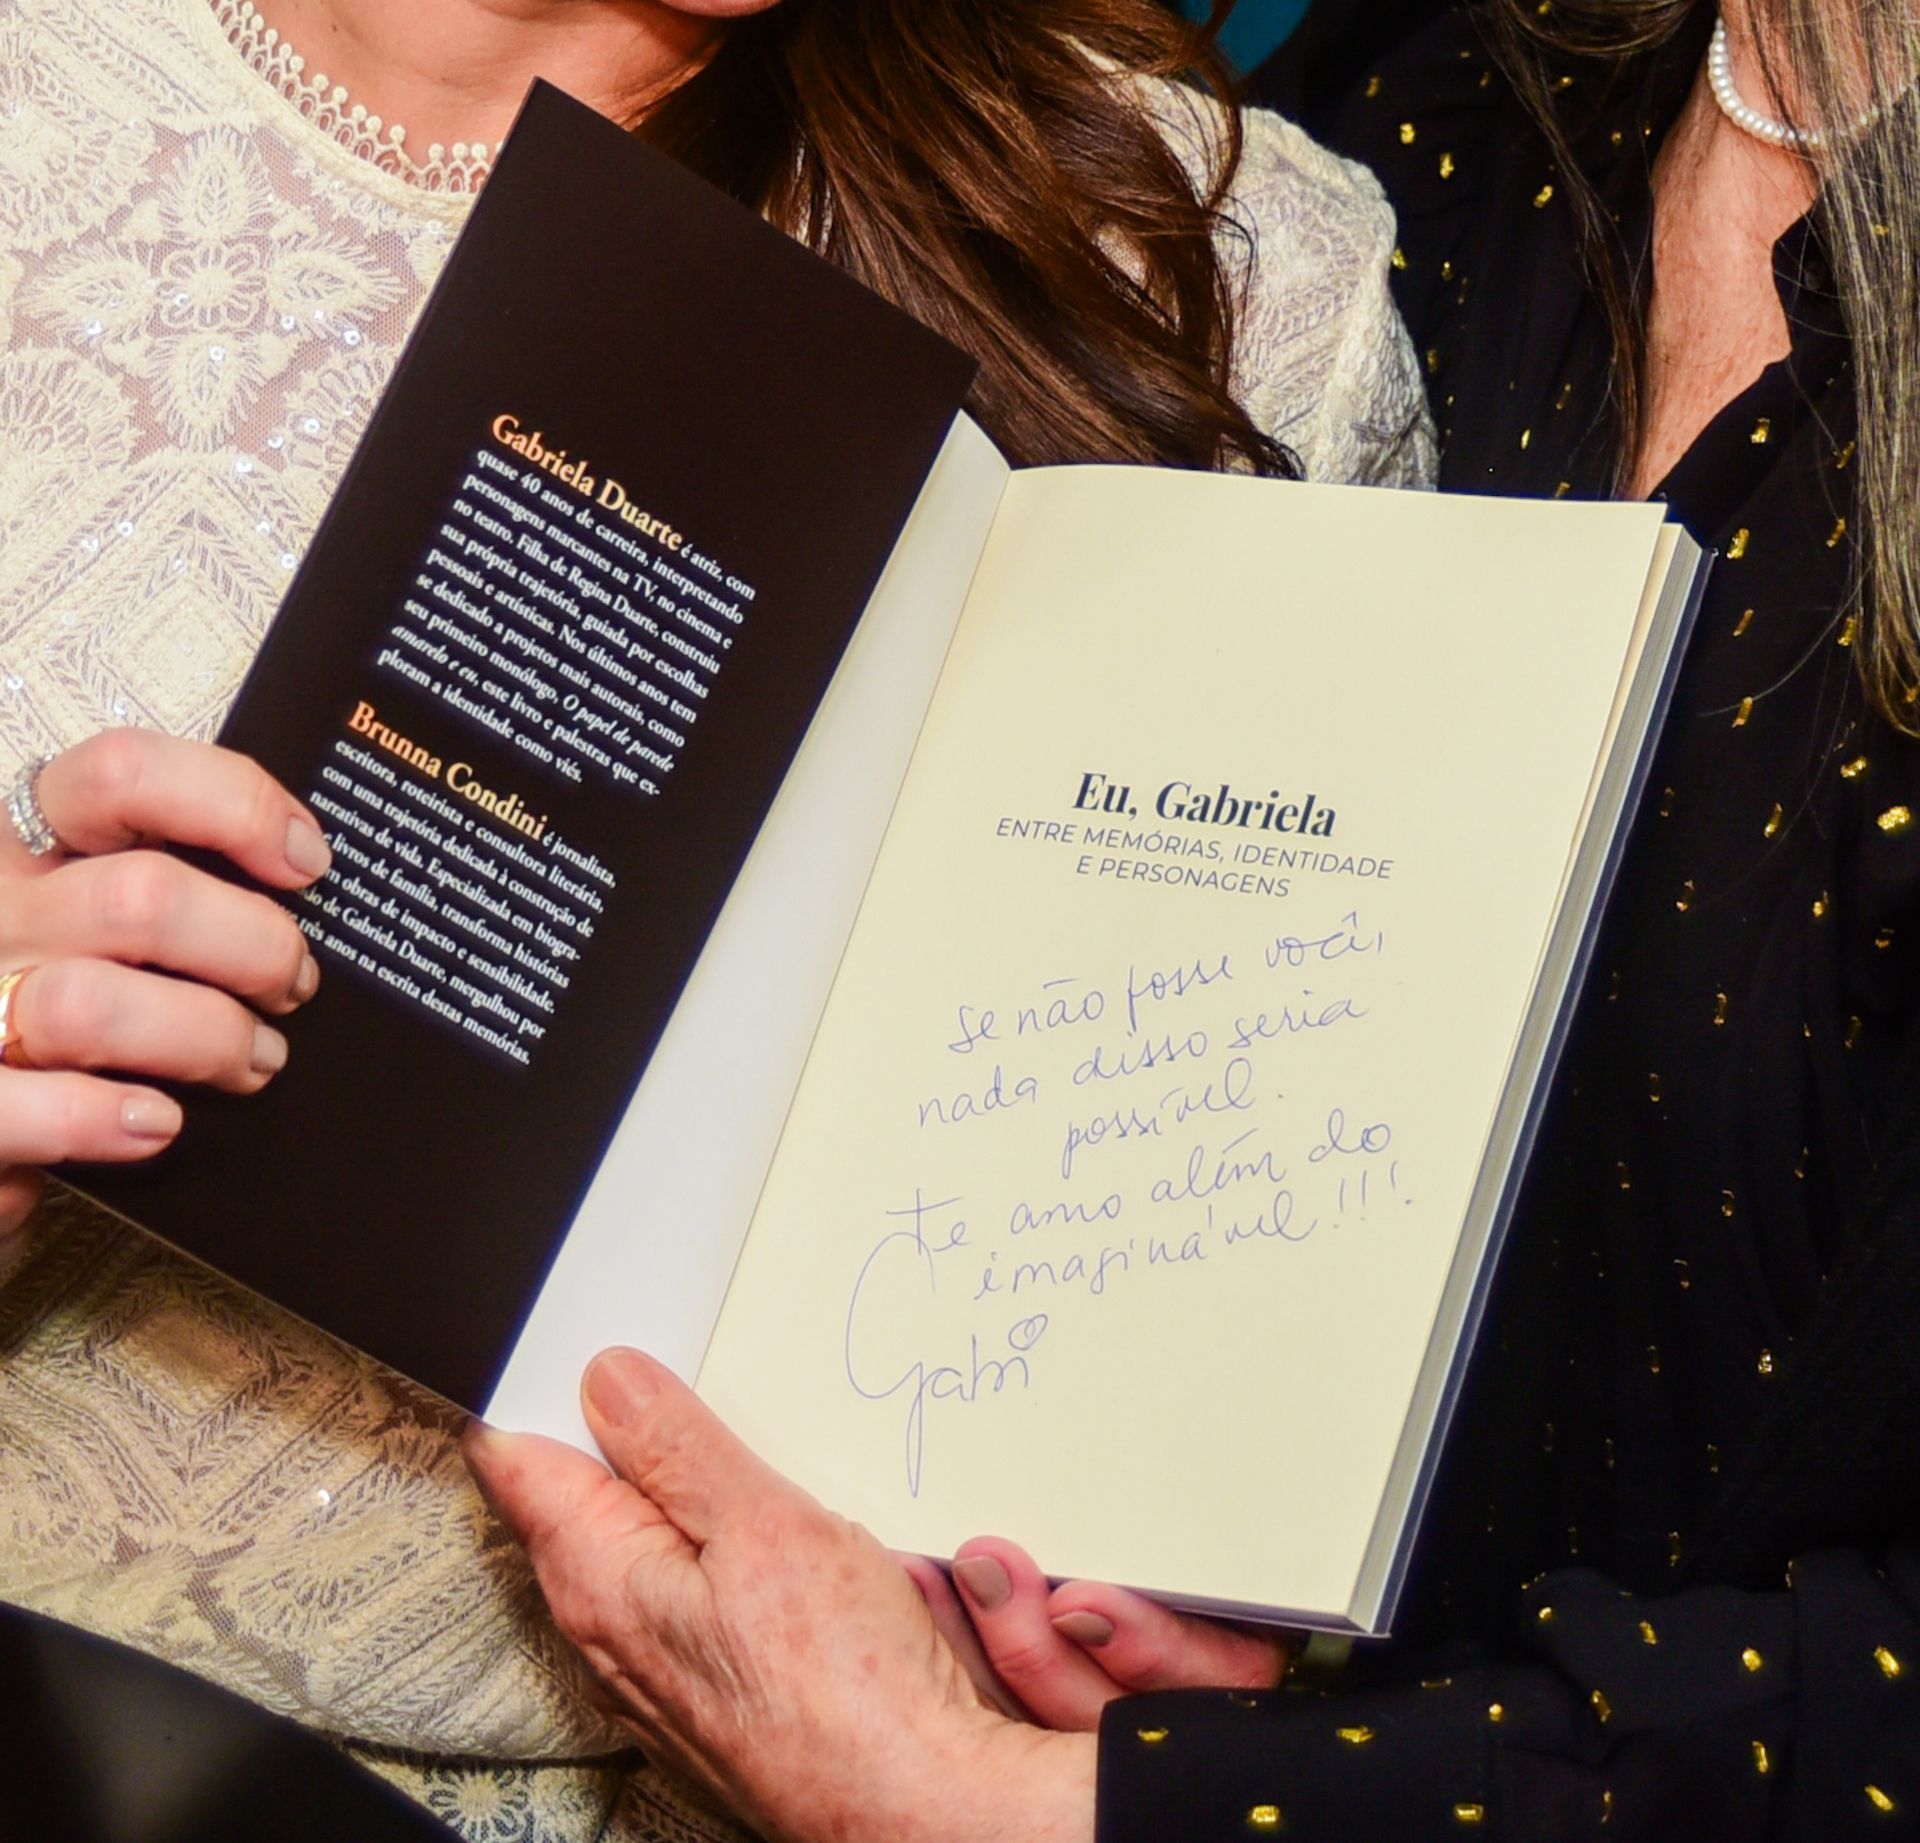 Gabriela Duarte é atriz, com
quase 40 anos de carreira, interpretando
personagens marcantes na TV, no cinema e
no teatro. Filha de Regina Duarte, construiu
sua própria trajetória, guiada por escolhas
pessoais e artísticas. Nos últimos anos tem
se dedicado a projetos mais autorais, como
seu primeiro monólogo, O papel de parede
amarelo e eu, este livro e palestras que ex-
ploram a identidade como viés.
Brunna Condini é jornalista,
escritora, roteirista e consultora literária,
com uma trajetória dedicada à construção de
narrativas de vida. Especializada em biogra-
e livros de família, transforma histórias
em obras de impacto e sensibilidade.
do de Gabriela Duarte, mergulhou por
três anos na escrita destas memórias.
Eu, Gabriela
ENTRE MEMÓRIAS, IDENTIDADE
E PERSONAGENS
Se não fosse você,
nada disso seria
possível.
Te amo além do
imaginável!!!
Gabi